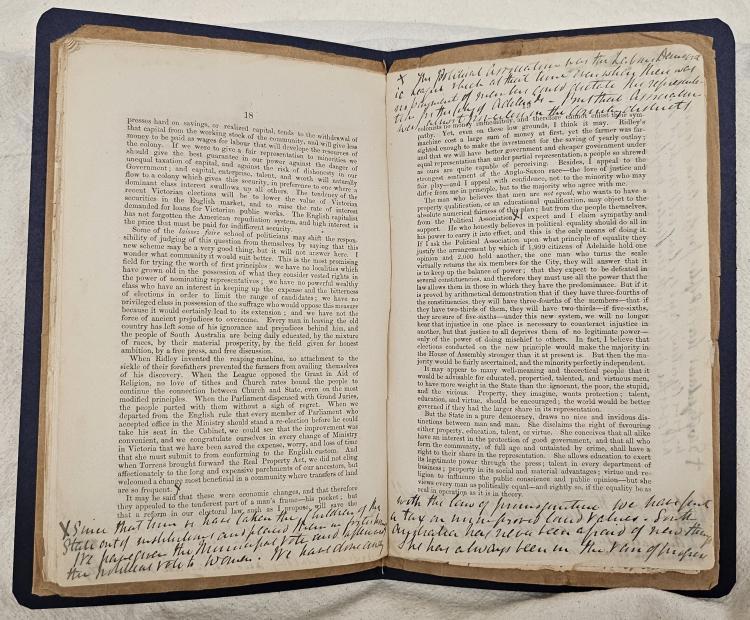 18
presses hard on savings, or realized capital, tends to the withdrawal of
that capital from the working stock of the community, and will give less
money to be paid as wages for labour that will develop the resources of
the colony. If we were to give a fair representation to minorities we
should give the best guarantee in our power against the danger of
unequal taxation of capital, and against the risk of dishonesty in our
Government; and capital, enterprise, talent, and worth will naturally
flow to a colony which gives this security, in preference to one where a
dominant class interest swallows up all others. The tendency of the
recent Victorian elections will be to lower the value of Victorian
securities in the English market, and to raise the rate of interest
demanded for loans for Victorian public works. The English capitalist
has not forgotten the American repudiation system, and high interest is
the price that must be paid for indifferent security.
Some of the laissez faire school of politicians may shift the respon-
sibility of judging of this question from themselves by saying that this
new scheme may be a very good thing, but it will not answer here. I
wonder what community it would suit better. This is the most promising
field for trying the worth of first principles; we have no localities which
have grown old in the possession of what they consider vested rights in
the power of nominating representatives; we have no powerful wealthy
class who have an interest in keeping up the expense and the bitterness
of elections in order to limit the range of candidates; we have no
privileged class in possession of the suffrage who would oppose this measure
because it would certainly lead to its extension; and we have not the
force of ancient prejudices to overcome. Every man in leaving the old
country has left some of his ignorance and prejudices behind him, and
the people of South Australia are being daily educated, by the mixture
of races, by their material prosperity, by the field given for honest
ambition, by a free press, and free discussion.
When Ridley invented the reaping-machine, no attachment to the
sickle of their forefathers prevented the farmers from availing themselves
of his discovery. When the League opposed the Grant in Aid of
Religion, no love of tithes and Church rates bound the people to
continue the connection between Church and State, even on the most
modified principles. When the Parliament dispensed with Grand Juries,
the people parted with them without a sigh of regret. When we
departed from the English rule that every member of Parliament who
accepted office in the Ministry should stand a re-election before he could
take his seat in the Cabinet, we could see that the improvement was
convenient, and we congratulate ourselves in every change of Ministry
in Victoria that we have been saved the expense, worry, and loss of time
that she must submit to from conforming to the English custom. And
when Torrens brought forward the Real Property Act, we did not cling
affectionately to the long and expensive parchments of our ancestors, but
welcomed a change most beneficial in a community where transfers of land
are so frequent. X
It may be said that these were economic changes, and that therefore
they appealed to the tenderest part of a man's frame—his pocket; but
that a reform in our electoral law, such as I propose, will save the
X Since that time we have taken the children of the
State out of institutions and placed them in
We have given the Municipal vote and afterwards
the political vote to women. We have done away
X The Political Association was the Labour Democra
league which at that time
employment of men but could dictate the representa-
tion for the City of Adelaide — But their Association
was in the Country districts
colonies no money and therefore cannot enlist their sym-
pathy. Yet, even on these low grounds, I think it may. Ridley's
machine cost a large sum of money at first, yet the farmer was far-
sighted enough to make the investment for the saving of yearly outlay;
and that we will have better government and cheaper government under
equal representation than under partial representation, a people so shrewd
as ours are quite capable of perceiving. Besides, I appeal to the
strongest sentiment of the Anglo-Saxon race—the love of justice and
fair play—and I appeal with confidence, not to the minority who may
differ from me in principle, but to the majority who agree with me.
The man who believes that men are not equal, who wants to have a
property qualification, or an educational qualification, may object to the
absolute numerical fairness of this plan; but from the people themselves,
from the Political Association, X I expect and I claim sympathy and
support. He who honestly believes in political equality should do all in
his power to carry it into effect, and this is the only means of doing it.
If I ask the Political Association upon what principle of equality they
justify the arrangement by which if 1,999 citizens of Adelaide hold one
opinion and 2,000 hold another, the one man who turns the scale
virtually returns the six members for the City, they will answer that it
is to keep up the balance of power; that they expect to be defeated in
several constituencies, and therefore they must use all the power that the
law allows them in those in which they have the predominance. But if it
is proved by arithmetical demonstration that if they have three-fourths of
the constituencies, they will have three-fourths of the members—that if
they have two-thirds of them, they will have two-thirds—if five-sixths,
they are sure of five-sixths—under this new system, we will no longer
hear that injustice in one place is necessary to counteract injustice in
another, but that justice to all deprives them of no legitimate power—
only of the power of doing mischief to others. In fact, I believe that
elections conducted on the new principle would make the majority in
the House of Assembly stronger than it at present is. But then the ma-
jority would be fairly ascertained, and the minority perfectly independent.
It may appear to many well-meaning and theoretical people that it
would be advisable for educated, propertied, talented, and virtuous men,
to have more weight in the State than the ignorant, the poor, the stupid,
and the vicious. Property, they imagine, wants protection; talent,
education, and virtue, should be encouraged; the world would be better
governed if they had the larger share in its representation.
But the State in a pure democracy, draws no nice and invidious dis-
tinctions between man and man. She disclaims the right of favouring
either property, education, talent, or virtue. She conceives that all alike
have an interest in the protection of good government, and that all who
form the community, of full age and untainted by crime, shall have a
right to their share in the representation. She allows education to exert
its legitimate power through the press; talent in every department of
business; property in its social and material advantages; virtue and re-
ligion to influence the public conscience and public opinion—but she
views every man as politically equal—and rightly so, if the equality be as
real in operation as it is in theory.
with the law of primogeniture. We have put
a tax on unimproved land values. South
Australia has never been afraid of new things
She has always been in the van of proper